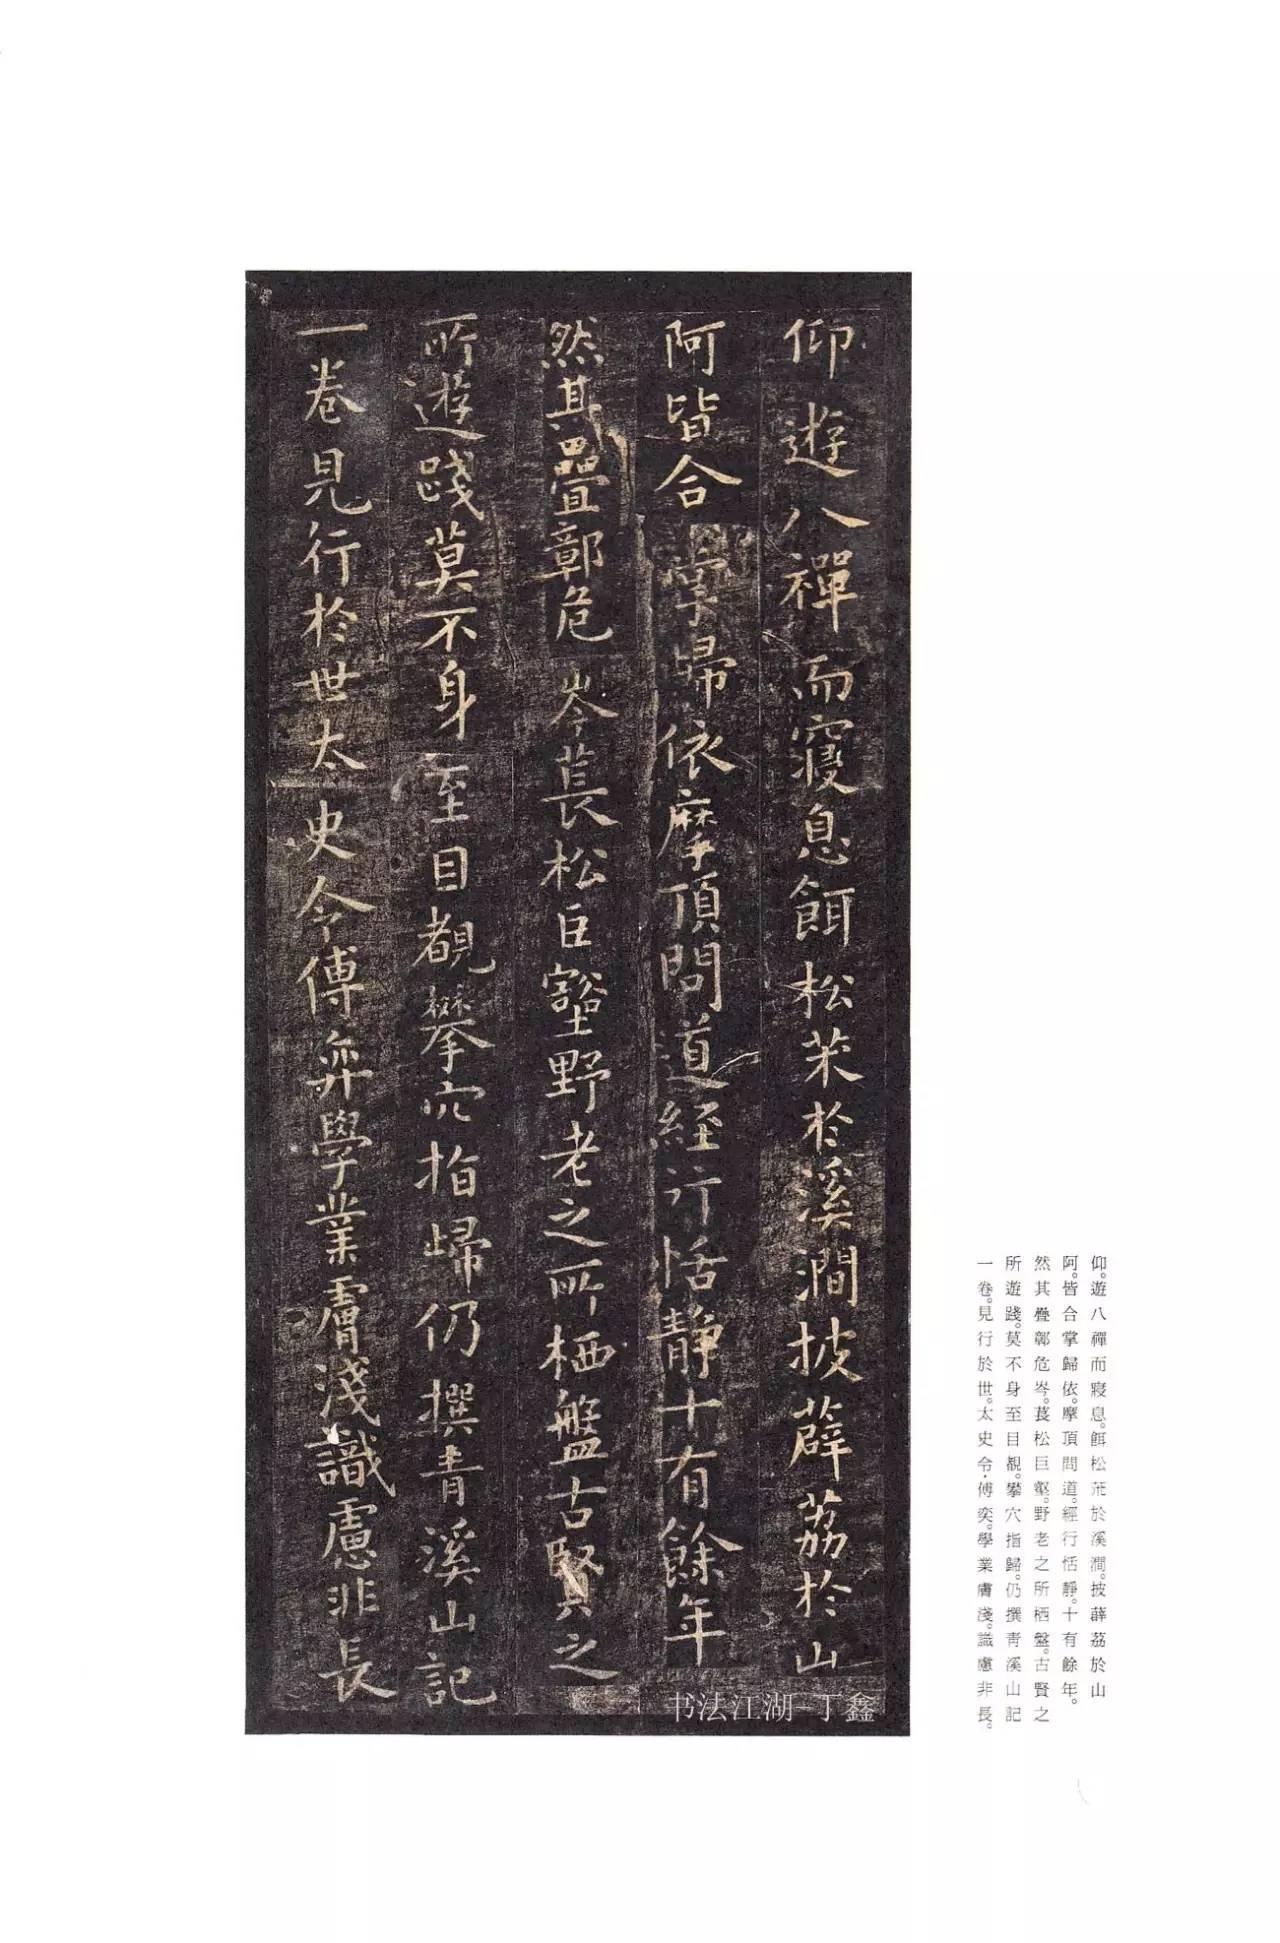 仰遊八禪而寢息餌松茱於溪澗披薜荔於山
阿皆合掌歸依摩頂問道經行恬靜十有餘年
然其疊鄣危岑萇松巨壑野老之所栖盤古賢之
所遊踐莫不身至目覩攀穴指歸仍撰青溪山記
一卷見行於世太史令傅弈學業膚淺識慮非長
书法江湖-丁鑫
仰。遊八禪而寢息。餌松茱於溪澗。披薜荔於山
阿。皆合掌歸依。摩頂問道。經行恬靜。十有餘年。
然其疊鄣危岑。萇松巨壑。野老之所栖盤。古賢之
所遊踐。莫不身至目覩。攀穴指歸。仍撰青溪山記
一卷。見行於世。太史令·傅奕。學業膚淺。識慮非長。